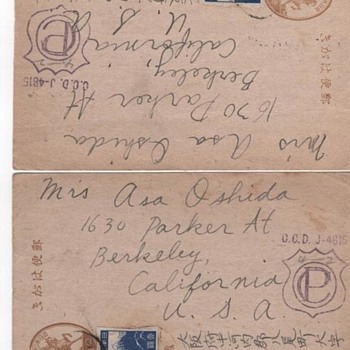 Mrs Asa Oshida
1630 Parker At
Berkeley,
California
U. S. A
C.C.D. J-4815
きがは便郵
Mrs Asa Oshida
1630 Parker At
Berkeley,
California
U. S. A.
C.C.D. J-4815
きがは便郵